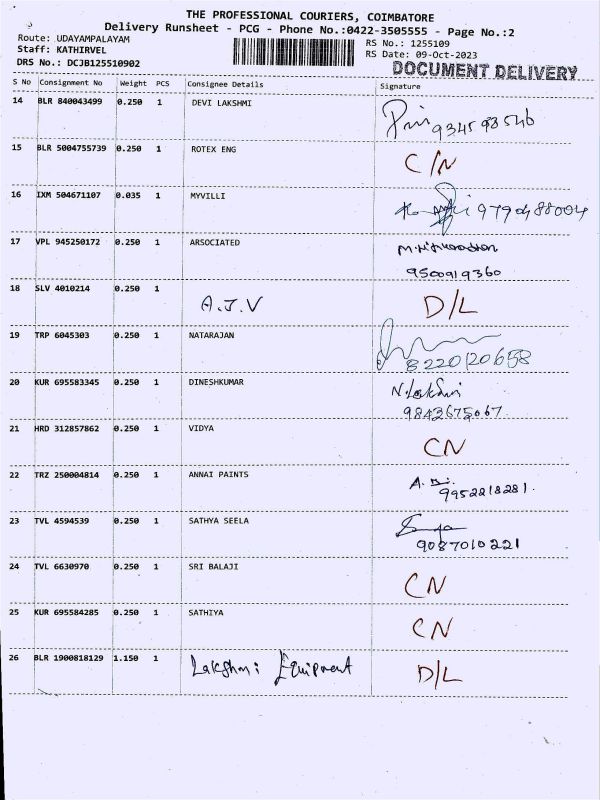 THE PROFESSIONAL COURIERS, COIMBATORE
Delivery Runsheet - PCG - Phone No.:0422-3505555 - Page No.:2
Route: UDAYAMPALAYAM
RS No.: 1255109
Staff: KATHIRVEL
RS Date: 09-Oct-2023
DRS No.: DCJB125510902
DOCUMENT DELIVERY
S No Consignment No Weight PCS Consignee Details Signature
14 BLR 840043499 0.250 1 DEVI LAKSHMI
15 BLR 5004755739 0.250 1 ROTEX ENG C/N
16 IXM 504671107 0.035 1 MYVILLI 9790488004
17 VPL 945250172 0.250 1 ARSOCIATED
9500919360
18 SLV 4010214 0.250 1 A.J.V D/L
19 TRP 6045303 0.250 1 NATARAJAN
8220120658
20 KUR 695583345 0.250 1 DINESHKUMAR
9842675067
21 HRD 312857862 0.250 1 VIDYA CN
22 TRZ 250004814 0.250 1 ANNAI PAINTS
9952218281.
23 TVL 4594539 0.250 1 SATHYA SEELA
9087010221
24 TVL 6630970 0.250 1 SRI BALAJI CN
25 KUR 695584285 0.250 1 SATHIYA CN
26 BLR 1900818129 1.150 1 Lakshmi Equipment D/L